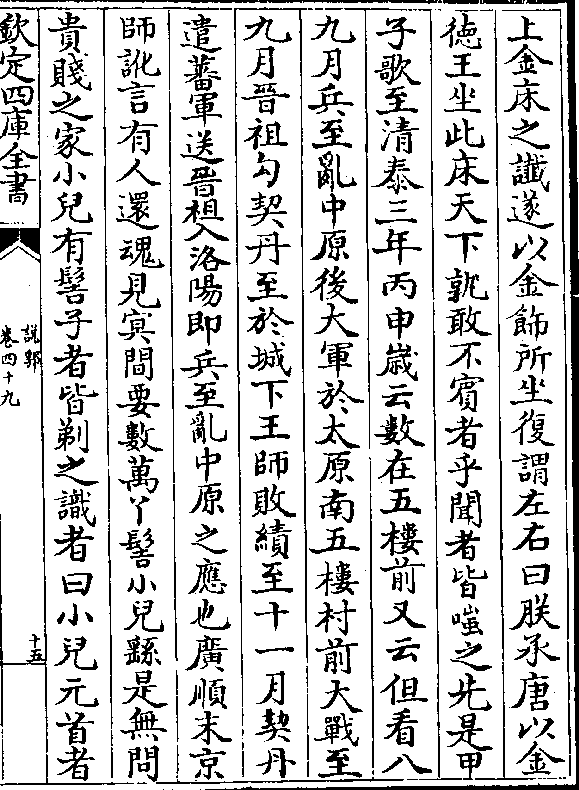 上金床之讖遂以金飾所坐復謂左右曰朕承唐以金
徳王坐此床天下孰敢不賓者乎聞者皆嗤之先是甲
子歌至清泰三年丙申歲云數在五樓前又云但看八
九月兵至亂中原後大軍於太原南五樓村前大戰至
九月晉祖勾契丹至於城下王師敗績至十一月契丹
遣蕃軍送晉祖入洛陽即兵至亂中原之應也廣順末京
師訛言有人還魂見㝠間要數萬丫髻小兒繇是無問
貴賤之家小兒有髻子者皆剃之識者曰小兒元首者
欽定四庫全書
説郛
卷四十九
十五